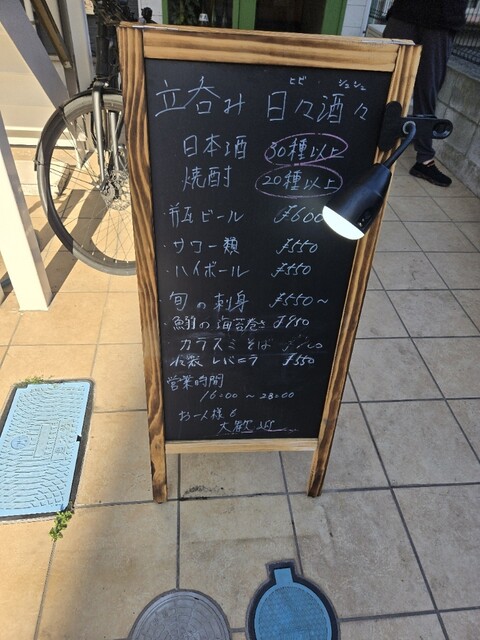 ヒビ シュシュ
立呑み 日々酒々
日本酒 30種以上
焼酎 20種以上
・ ビール ¥600
・サワー類 ¥550
・ハイボール ¥550
・旬の刺身 ¥550〜
・の海苔巻き ¥950
・カラスミそば
レバニラ ¥550
営業時間
16:00 〜 23:00
お一人様も
大歓迎